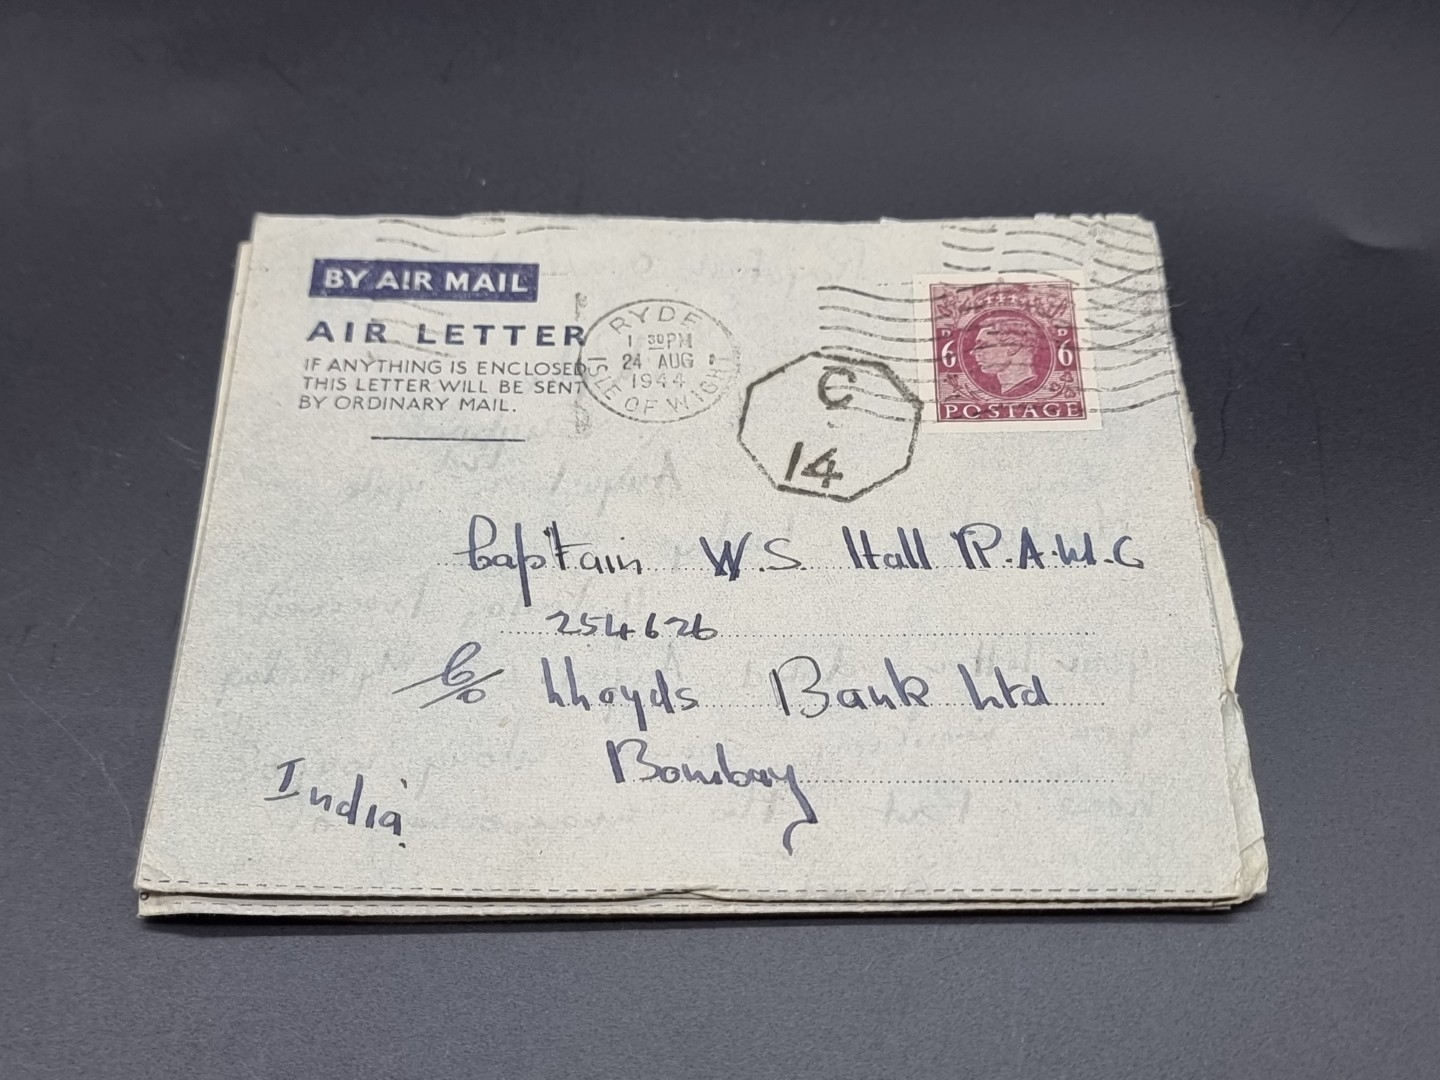 BY AIR MAIL
AIR LETTER
IF ANYTHING IS ENCLOSED
THIS LETTER WILL BE SENT
BY ORDINARY MAIL.
RYDE
1 30PM
24 AUG
1944
ISLE OF WIGHT
C
14
D D
6 6
POSTAGE
Captain W.S. Hall R.A.M.C
254626
C/o Lloyds Bank Ltd
Bombay
India